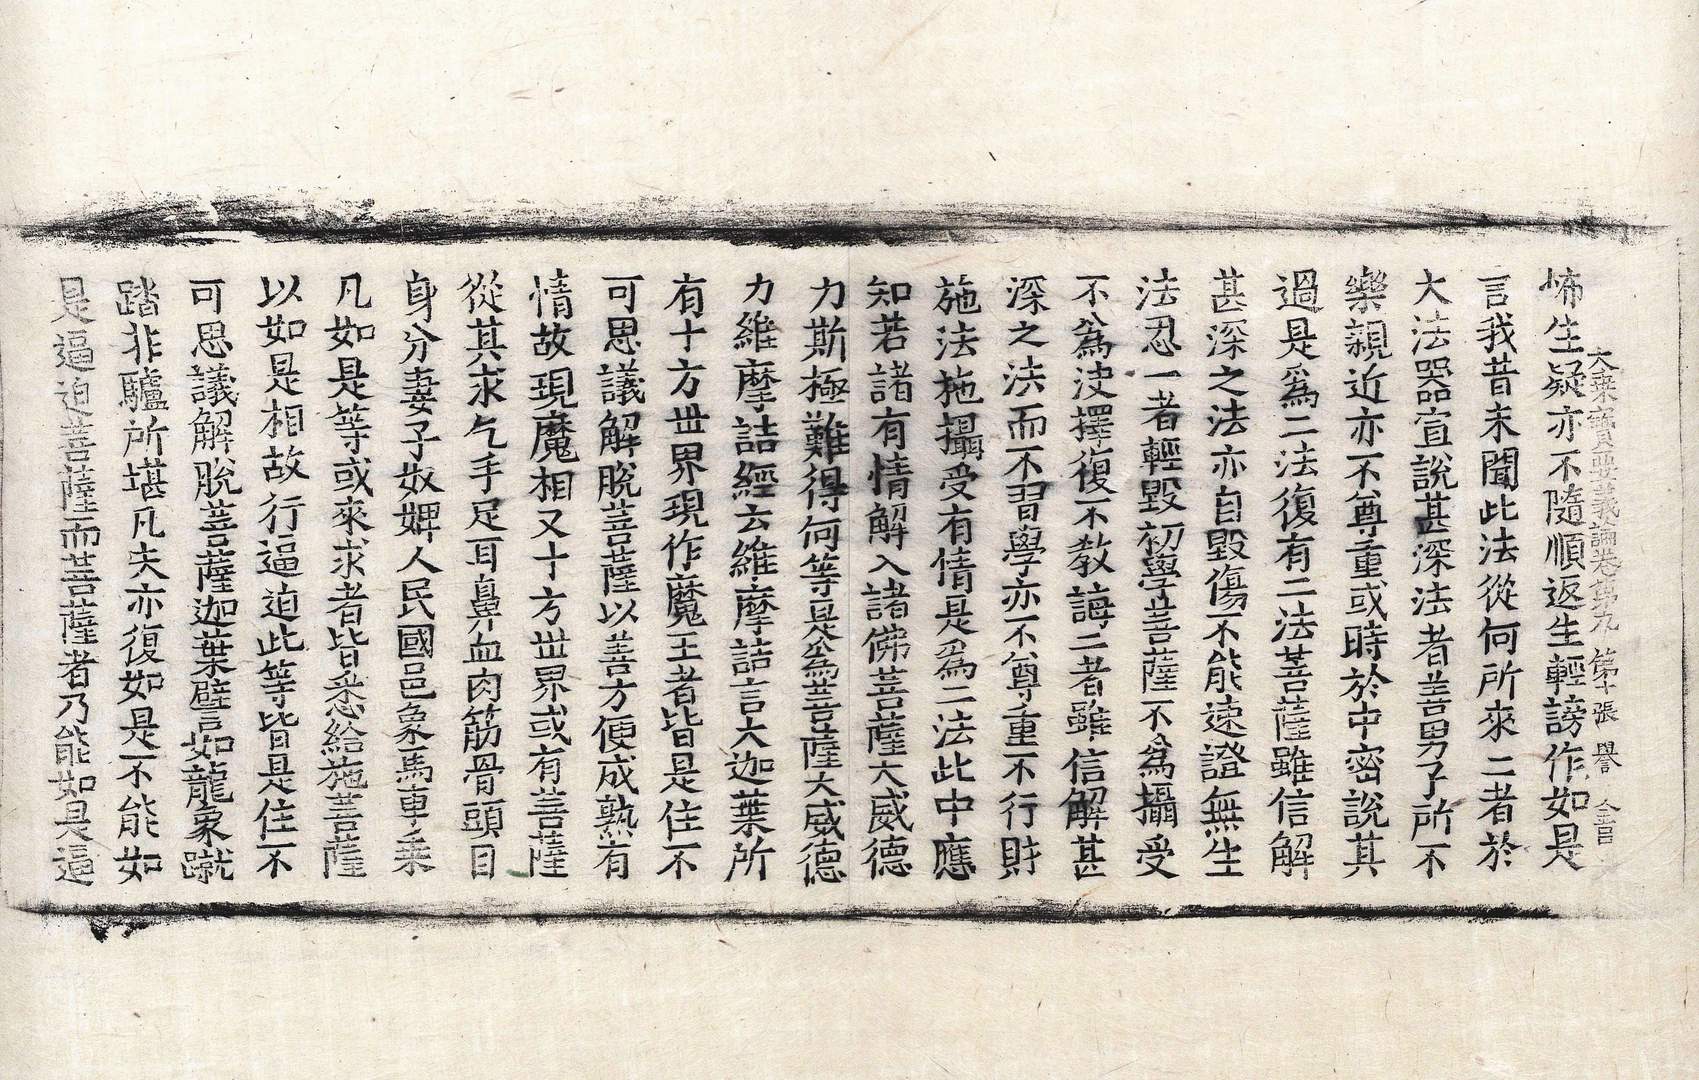 大乘寶要義論卷第九　第十張　譽
怖生疑亦不隨順返生輕謗作如是
言我昔未聞此法從何所來二者於
大法器宣說甚深法者善男子所不
樂親近亦不尊重或時於中密說其
過是爲二法復有二法菩薩雖信解
甚深之法亦自毀傷不能速證無生
法忍一者輕毀初學菩薩不爲攝受
不爲決擇復不教誨二者雖信解甚
深之法而不習學亦不尊重不行財
施法施攝受有情是爲二法此中應
知若諸有情解入諸佛菩薩大威德
力斯極難得何等是爲菩薩大威德
力維摩詰經云維摩詰言大迦葉所
有十方世界現作魔王者皆是住不
可思議解脫菩薩以善方便成熟有
情故現魔相又十方世界或有菩薩
從其求乞手足耳鼻血肉筋骨頭目
身分妻子奴婢人民國邑象馬車乘
凡如是等或來求者皆悉給施菩薩
以如是相故行逼迫此等皆是住不
可思議解脫菩薩迦葉譬如龍象蹴
踏非驢所堪凡夫亦復如是不能如
是逼迫菩薩而菩薩者乃能如是逼